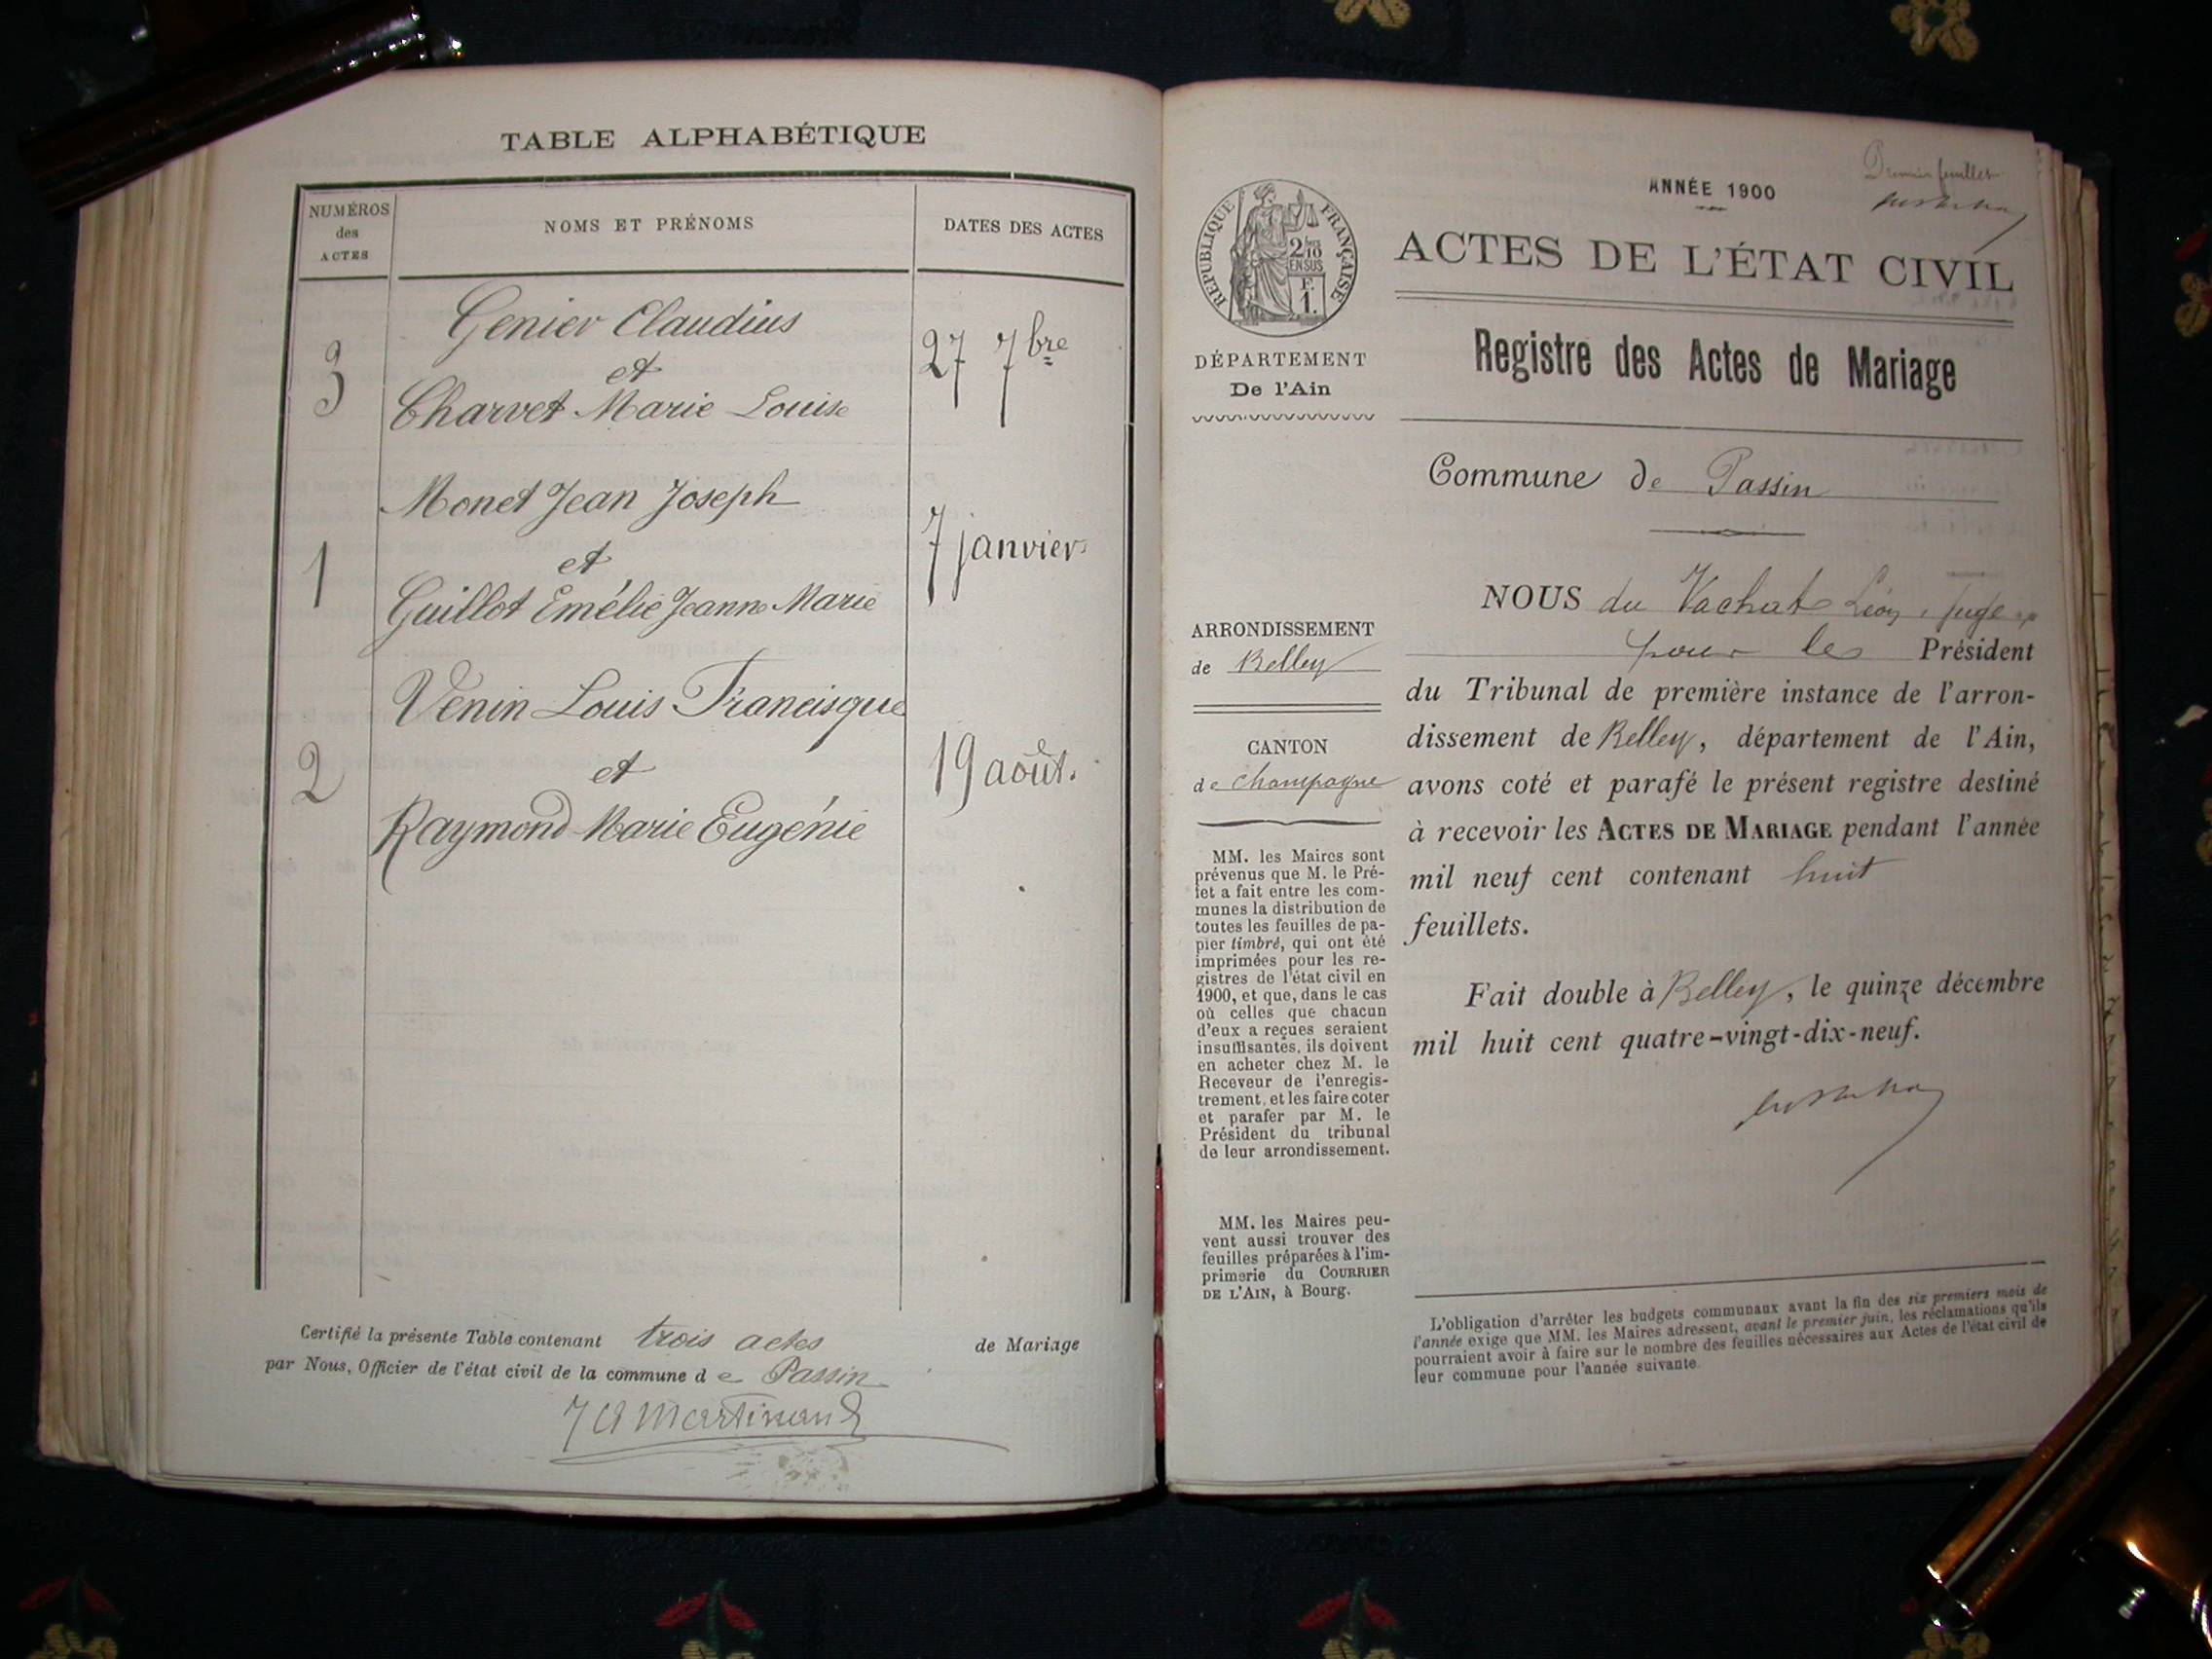 TABLE ALPHABÉTIQUE
NUMÉROS
des
ACTES
NOMS ET PRÉNOMS
DATES DES ACTES
Genier Claudius
3 et 27 7bre
Charvet Marie Louise
Monet Jean Joseph
1 et 7 janvier
Guillot Emélie Jeanne Marie
Venin Louis Francisque
2 et 19 août.
Raymond Marie Eugénie
Certifié la présente Table contenant trois actes de Mariage
par Nous, Officier de l'état civil de la commune d e Passin
Martinand
Premier feuillet
ANNÉE 1900
RÉPUBLIQUE FRANÇAISE
2/10
EN SUS
F.
1.
ACTES DE L'ÉTAT CIVIL
DÉPARTEMENT
De l'Ain
Registre des Actes de Mariage
Commune de Passin
ARRONDISSEMENT
de Belley
CANTON
de Champagne
MM. les Maires sont
prévenus que M. le Pré-
fet a fait entre les com-
munes la distribution de
toutes les feuilles de pa-
pier timbré, qui ont été
imprimées pour les re-
gistres de l'état civil en
1900, et que, dans le cas
où celles que chacun
d'eux a reçues seraient
insuffisantes, ils doivent
en acheter chez M. le
Receveur de l'enregis-
trement, et les faire coter
et parafer par M. le
Président du tribunal
de leur arrondissement.
MM. les Maires peu-
vent aussi trouver des
feuilles préparées à l'im-
primerie du COURRIER
DE L'AIN, à Bourg.
NOUS du Vachat Léon, Juge
pour le Président
du Tribunal de première instance de l'arron-
dissement de Belley, département de l'Ain,
avons coté et parafé le présent registre destiné
à recevoir les ACTES DE MARIAGE pendant l'année
mil neuf cent contenant huit
feuillets.
Fait double à Belley, le quinze décembre
mil huit cent quatre-vingt-dix-neuf.
L'obligation d'arrêter les budgets communaux avant la fin des six premiers mois de
l'année exige que MM. les Maires adressent, avant le premier juin, les réclamations qu'ils
pourraient avoir à faire sur le nombre des feuilles nécessaires aux Actes de l'état civil de
leur commune pour l'année suivante.